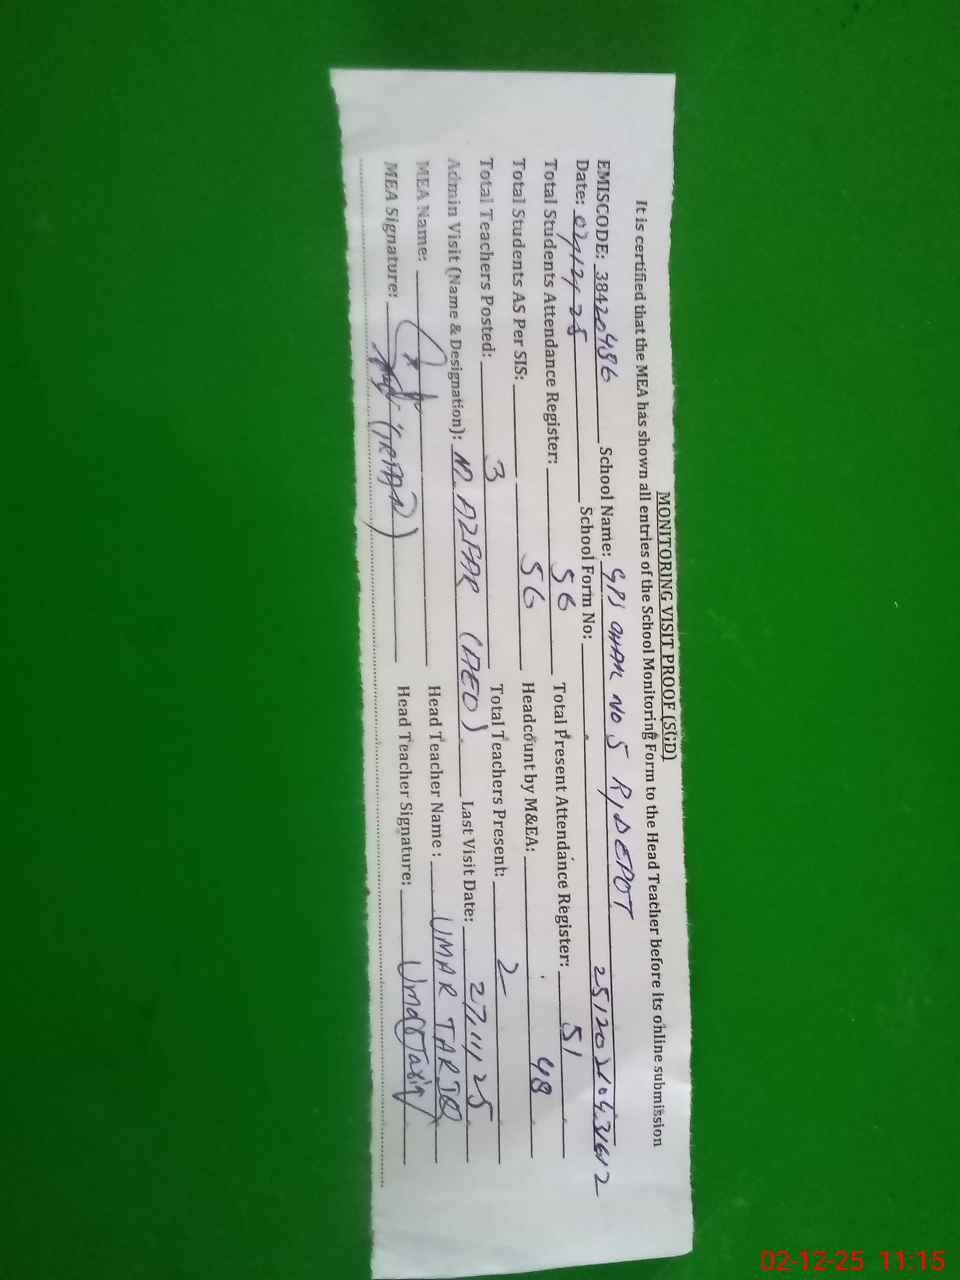 MONITORING VISIT PROOF (SGD)
It is certified that the MEA has shown all entries of the School Monitoring Form to the Head Teacher before its online submission
EMISCODE: 38420486 School Name: GPS CHAK NO 5 R/DEPOT
Date: 02/12/25 School Form No: 25120210431612
Total Students Attendance Register: 56 Total Present Attendance Register: 51
Total Students AS Per SIS: 56 Headcount by M&EA: 48
Total Teachers Posted: 3 Total Teachers Present: 2
Admin Visit (Name & Designation): M AZHAR (AEO) Last Visit Date: 27/11/25
MEA Name: Head Teacher Name : UMAR TARIQ
MEA Signature: Head Teacher Signature: Umar Tariq
02-12-25 11:15